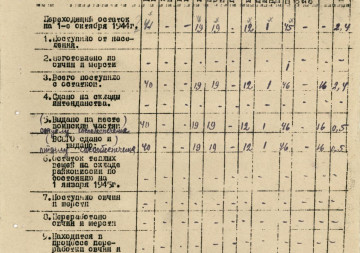 Переходящий остаток
на 1-е октября 1944г. 41 - 19 19 - 12 1 45 - - 2,4
1. Поступило от насе-
лений. - - - - - - - - - - -
2. Изготовлено из
овчин и шерсти - - - - - - - 1 - - -
3. Всего поступило
с остатком. 40 - 19 19 - 12 1 46 - 16 2,4
4. Сдано на склады
интендантства. - - - - - - - - - - -
(5. Выдано на место)
воинским частям 40 - 19 19 - 12 1 46 - 16 0,5
сдано и
выдано: 40 - 19 19 - 12 1 46 - 16 0,5
6. Остаток теплых
вещей на складе
райкомиссии по
состоянию на
1 января 1945г. - - - - - - - - - - -
7. Поступило овчин
и шерсти - - - - - - - - - - -
8. Переработано
овчин и шерсти - - - - - - - - - - -
9. Находится в
процессе пере-
работки овчин и